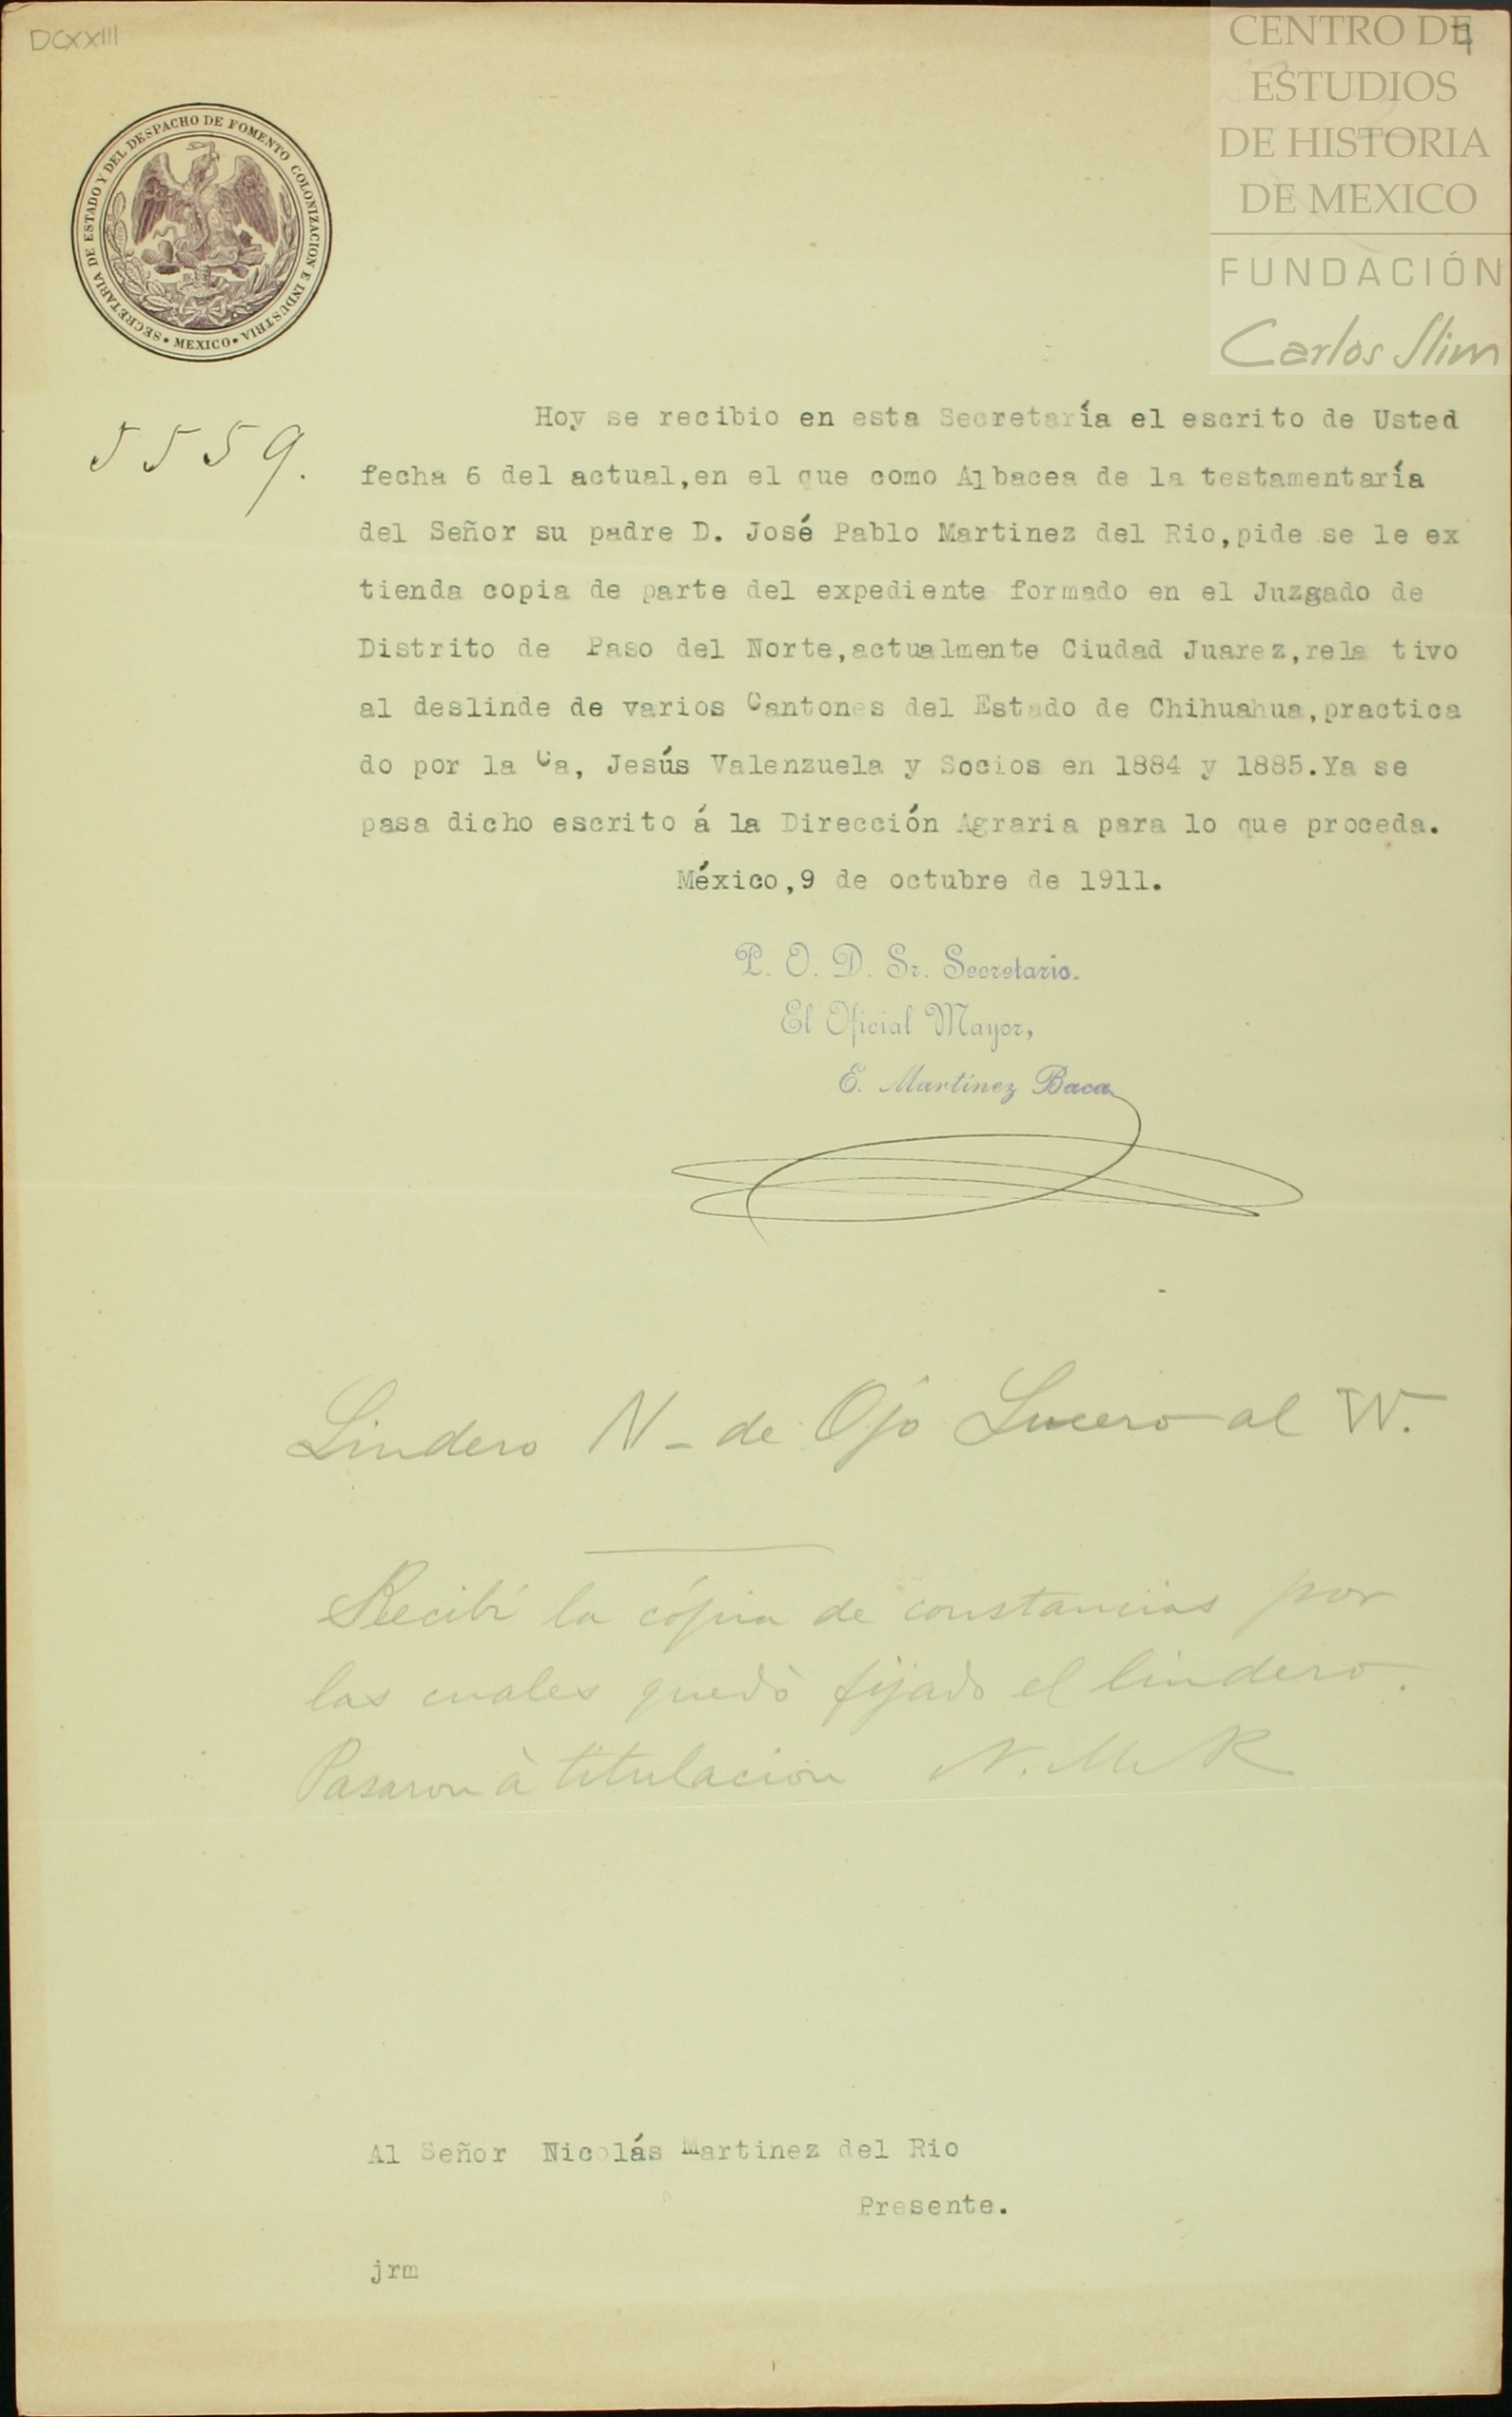 DCXXIII
CENTRO DE
ESTUDIOS
DE HISTORIA
DE MEXICO
FUNDACIÓN
Carlos Slim
SECRETARIA DE ESTADO Y DEL DESPACHO DE FOMENTO COLONIZACION E INDUSTRIA
• MEXICO •
5559.
Hoy se recibio en esta Secretaría el escrito de Usted
fecha 6 del actual,en el que como Albacea de la testamentaría
del Señor su padre D. José Pablo Martinez del Rio,pide se le ex
tienda copia de parte del expediente formado en el Juzgado de
Distrito de Paso del Norte,actualmente Ciudad Juarez,rela tivo
al deslinde de varios Cantones del Estado de Chihuahua,practica
do por la Ca, Jesús Valenzuela y Socios en 1884 y 1885.Ya se
pasa dicho escrito á la Dirección Agraria para lo que proceda.
México,9 de octubre de 1911.
P. O. D. Sr. Secretario.
El Oficial Mayor,
E. Martínez Baca
Lindero N - de Ojo Lucero al W.
Recibí la cópia de constancias por
las cuales quedò fijado el lindero.
Pasaron à titulacion N. M R
Al Señor Nicolás Martinez del Rio
Presente.
jrm